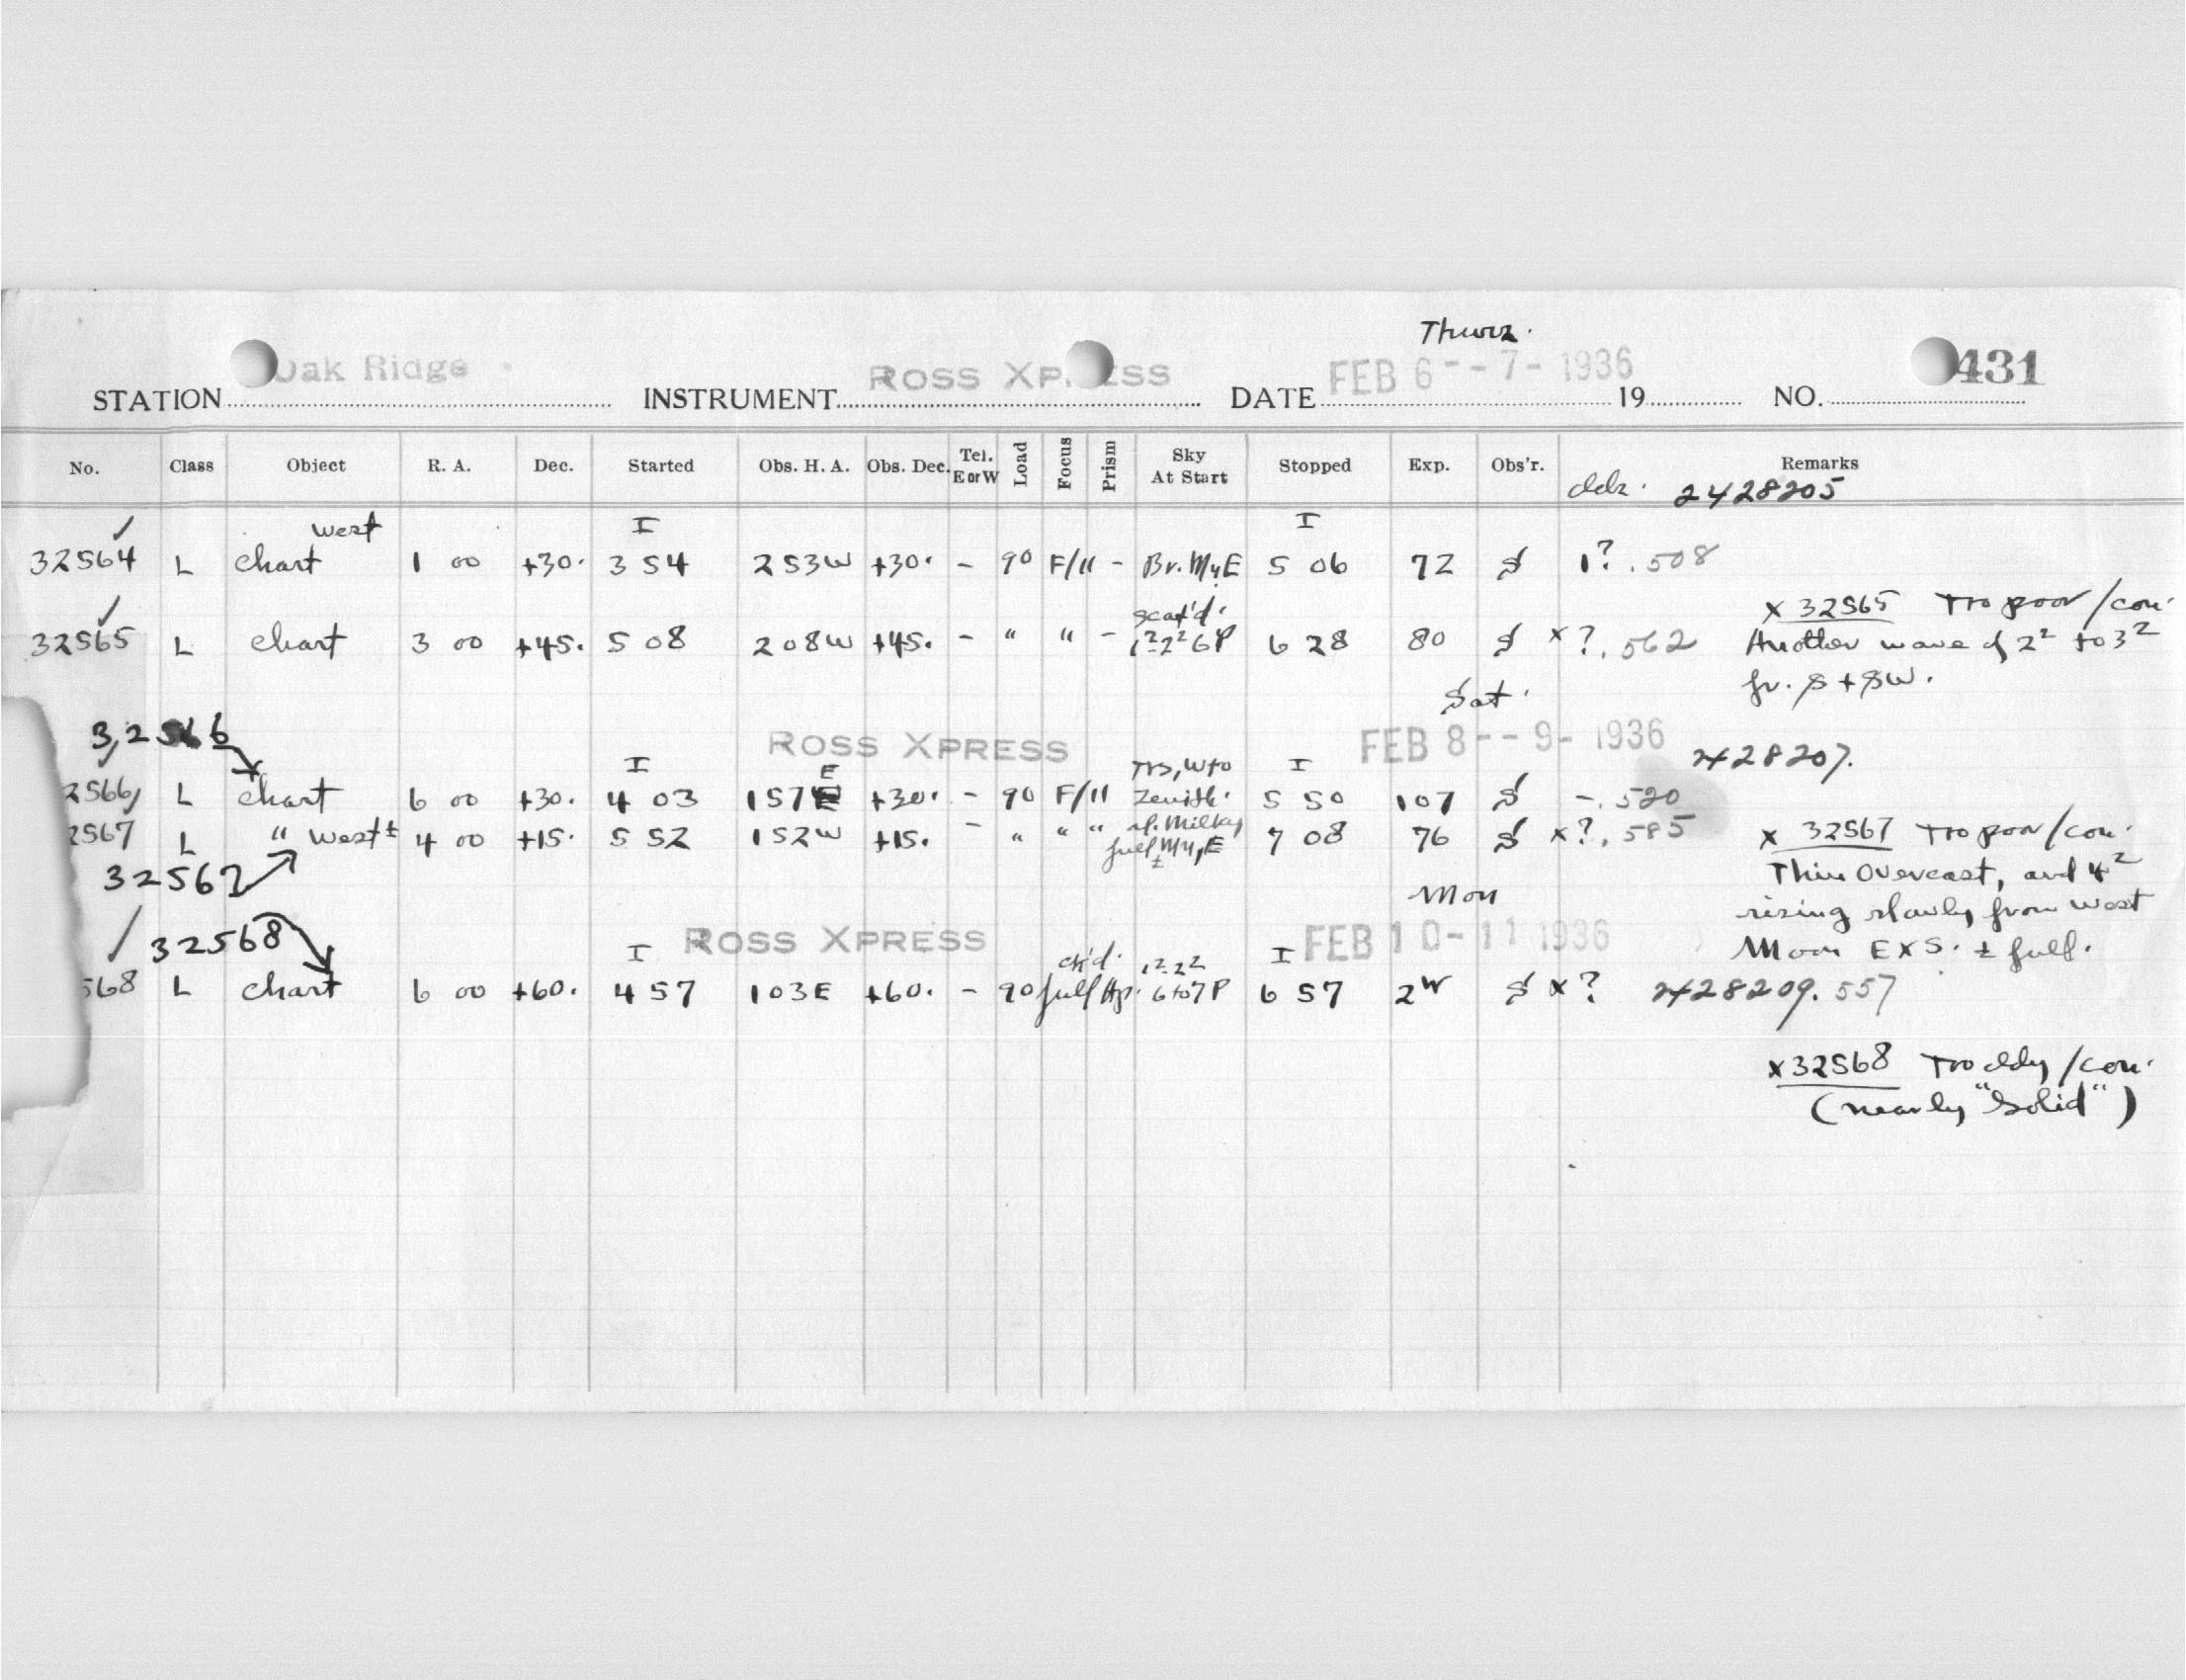 Thurs.
STATION Oak Ridge INSTRUMENT ROSS XPRESS DATE FEB 6--7-1936 19 NO. 431
No. Class Object R. A. Dec. Started Obs. H. A. Obs. Dec. Tel. E or W Load Focus Prism Sky At Start Stopped Exp. Obs'r. Remarks
2428205
west I I
32564 L chart 1 00 +30. 3 54 253W +30. - 90 F/11 - Br. Mn E 5 06 72 S 1? .508
scat'd.
32565 L chart 3 00 +45. 5 08 208W +45. - " " - 1²2² 6P 6 28 80 S x? .562
x 32565 Too poor /con.
Another wave of 2² to 3²
fr. S + SW.
Sat.
32566 ROSS XPRESS FEB 8--9-1936 2428207.
I E Trs, W to I
2566 L chart 6 00 +30. 4 03 157E +30. - 90 F/11 Zenith. 5 50 107 S -.520
2567 L " West± 4 00 +15. 5 52 152W +15. - " " " sl. Milky full ± Mn, E 7 08 76 S x? .585
32567
x 32567 Too poor /con.
Thin Overcast, and 4²
rising slowly from west
Moon EXS. ± full.
Mon
32568 ROSS XPRESS FEB 10-11 1936
I ck'd. 1²-2² I
568 L chart 6 00 +60. 4 57 103E +60. - 90 full 6 to 7P 6 57 2W S x? 2428209.557
x32568 Too cldy /con.
(nearly "Solid")